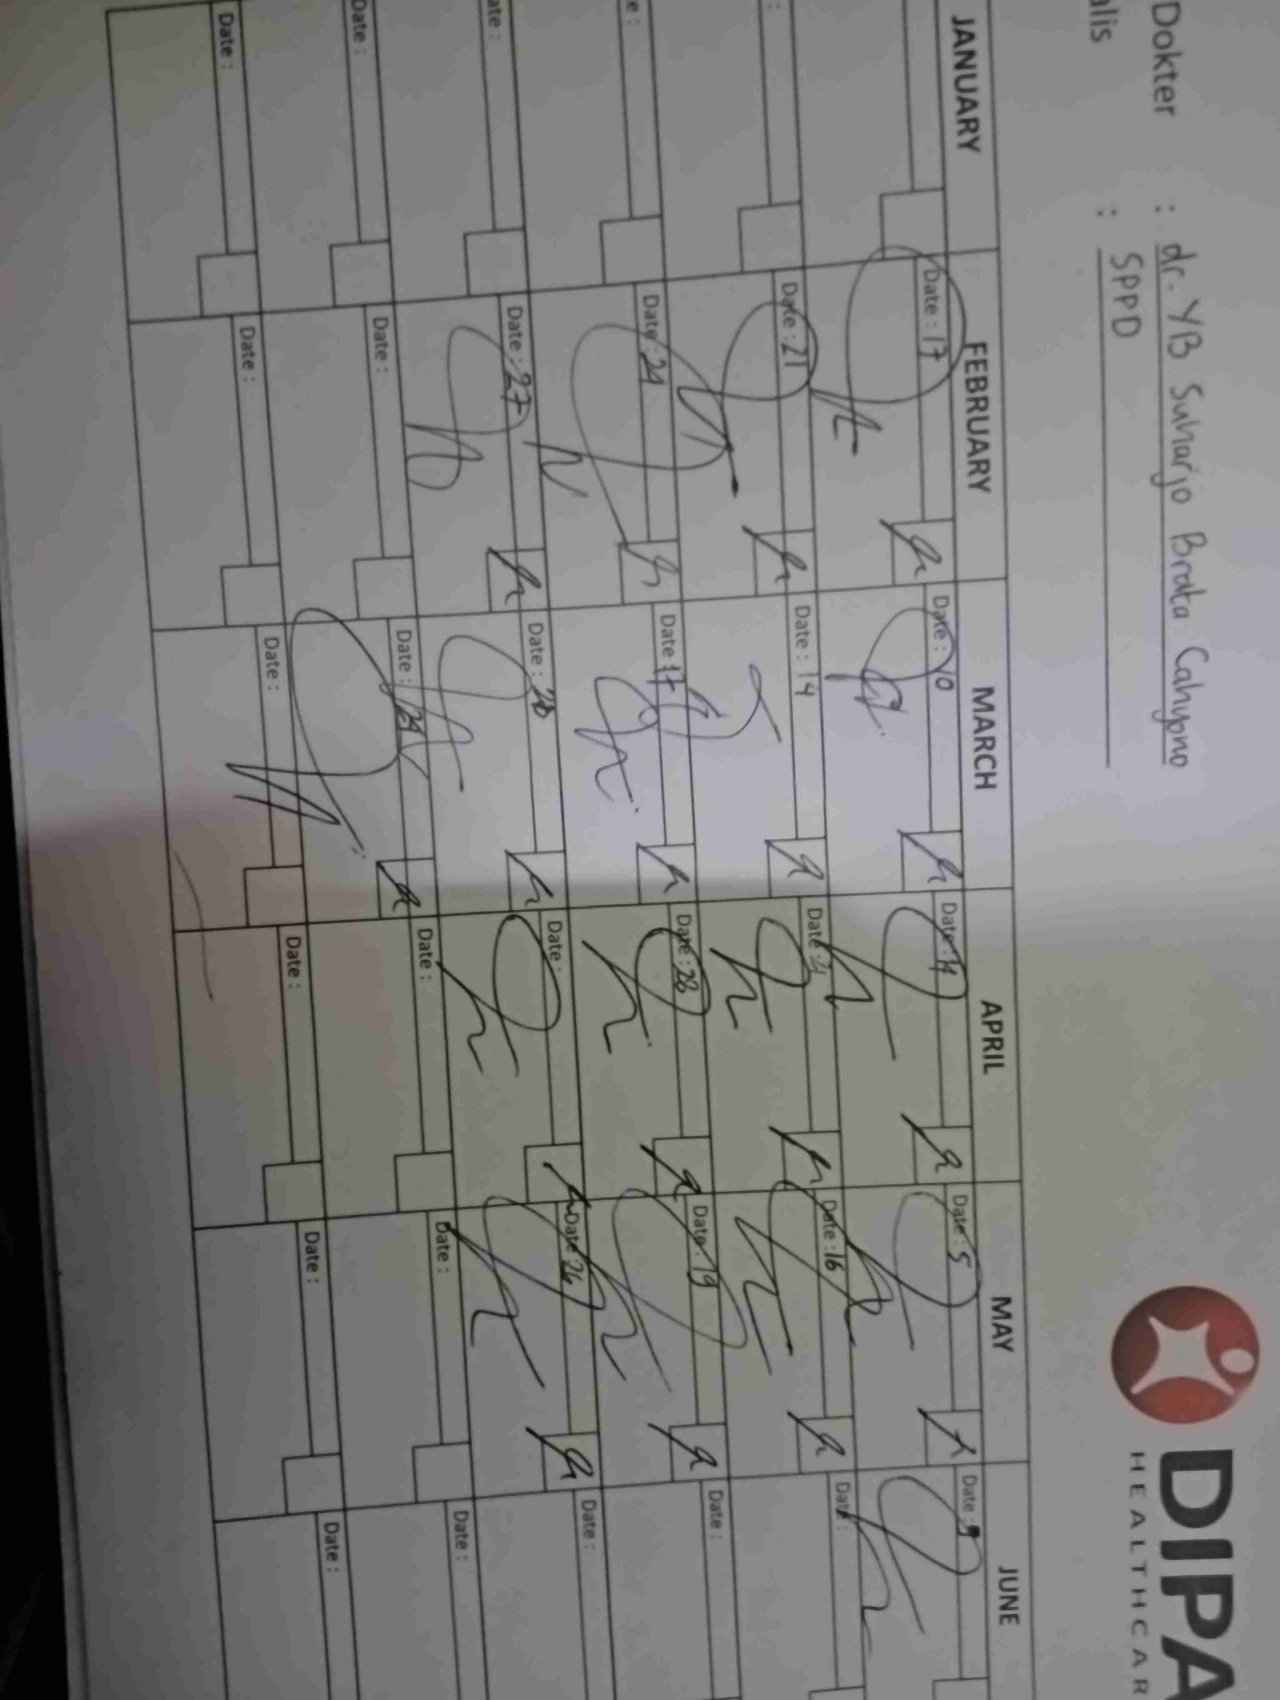 DIPA
HEALTHCAR
Dokter : dr. YB Suharjo Brata Cahyono
alis : SPPD
JANUARY FEBRUARY MARCH APRIL MAY JUNE
Date : 17 Date : 10 Date : 14 Date : 5 Date :
: Date : 21 Date : 14 Date : 21 Date : 16 Date :
e : Date : 24 Date : 17 Date : 28 Date : 19 Date :
ate : Date : 27 Date : 20 Date : Date : 26 Date :
Date : Date : Date : 24 Date : Date : Date :
Date : Date : Date : Date : Date : Date :